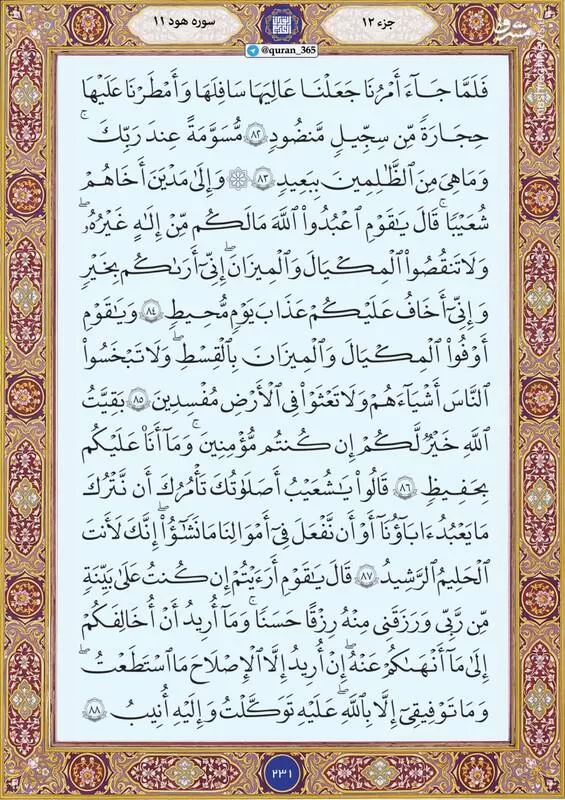 جزء ۱۲
سوره هود ۱۱
@quran_365
فَلَمَّا جَآءَ أَمْرُنَا جَعَلْنَا عَالِيَهَا سَافِلَهَا وَأَمْطَرْنَا عَلَيْهَا
حِجَارَةً مِّن سِجِّيلٍ مَّنضُودٍ ۸۲ مُّسَوَّمَةً عِندَ رَبِّكَۖ
وَمَا هِىَ مِنَ ٱلظَّـٰلِمِينَ بِبَعِيدٍ ۸۳ ۞ وَإِلَىٰ مَدْيَنَ أَخَاهُمْ
شُعَيْبًاۚ قَالَ يَـٰقَوْمِ ٱعْبُدُوا۟ ٱللَّهَ مَا لَكُم مِّنْ إِلَـٰهٍ غَيْرُهُۥۖ
وَلَا تَنقُصُوا۟ ٱلْمِكْيَالَ وَٱلْمِيزَانَۖ إِنِّىٓ أَرَىٰكُم بِخَيْرٍ
وَإِنِّىٓ أَخَافُ عَلَيْكُمْ عَذَابَ يَوْمٍ مُّحِيطٍ ۸۴ وَيَـٰقَوْمِ
أَوْفُوا۟ ٱلْمِكْيَالَ وَٱلْمِيزَانَ بِٱلْقِسْطِۖ وَلَا تَبْخَسُوا۟
ٱلنَّاسَ أَشْيَآءَهُمْ وَلَا تَعْثَوْا۟ فِى ٱلْأَرْضِ مُفْسِدِينَ ۸۵ بَقِيَّتُ
ٱللَّهِ خَيْرٌ لَّكُمْ إِن كُنتُم مُّؤْمِنِينَۚ وَمَآ أَنَا۠ عَلَيْكُم
بِحَفِيظٍ ۸۶ قَالُوا۟ يَـٰشُعَيْبُ أَصَلَوٰتُكَ تَأْمُرُكَ أَن نَّتْرُكَ
مَا يَعْبُدُ ءَابَآؤُنَآ أَوْ أَن نَّفْعَلَ فِىٓ أَمْوَٰلِنَا مَا نَشَـٰٓؤُا۟ۖ إِنَّكَ لَأَنتَ
ٱلْحَلِيمُ ٱلرَّشِيدُ ۸۷ قَالَ يَـٰقَوْمِ أَرَءَيْتُمْ إِن كُنتُ عَلَىٰ بَيِّنَةٍ
مِّن رَّبِّى وَرَزَقَنِى مِنْهُ رِزْقًا حَسَنًاۚ وَمَآ أُرِيدُ أَنْ أُخَالِفَكُمْ
إِلَىٰ مَآ أَنْهَىٰكُمْ عَنْهُۚ إِنْ أُرِيدُ إِلَّا ٱلْإِصْلَـٰحَ مَا ٱسْتَطَعْتُۚ
وَمَا تَوْفِيقِىٓ إِلَّا بِٱللَّهِۚ عَلَيْهِ تَوَكَّلْتُ وَإِلَيْهِ أُنِيبُ ۸۸
۲۳۱